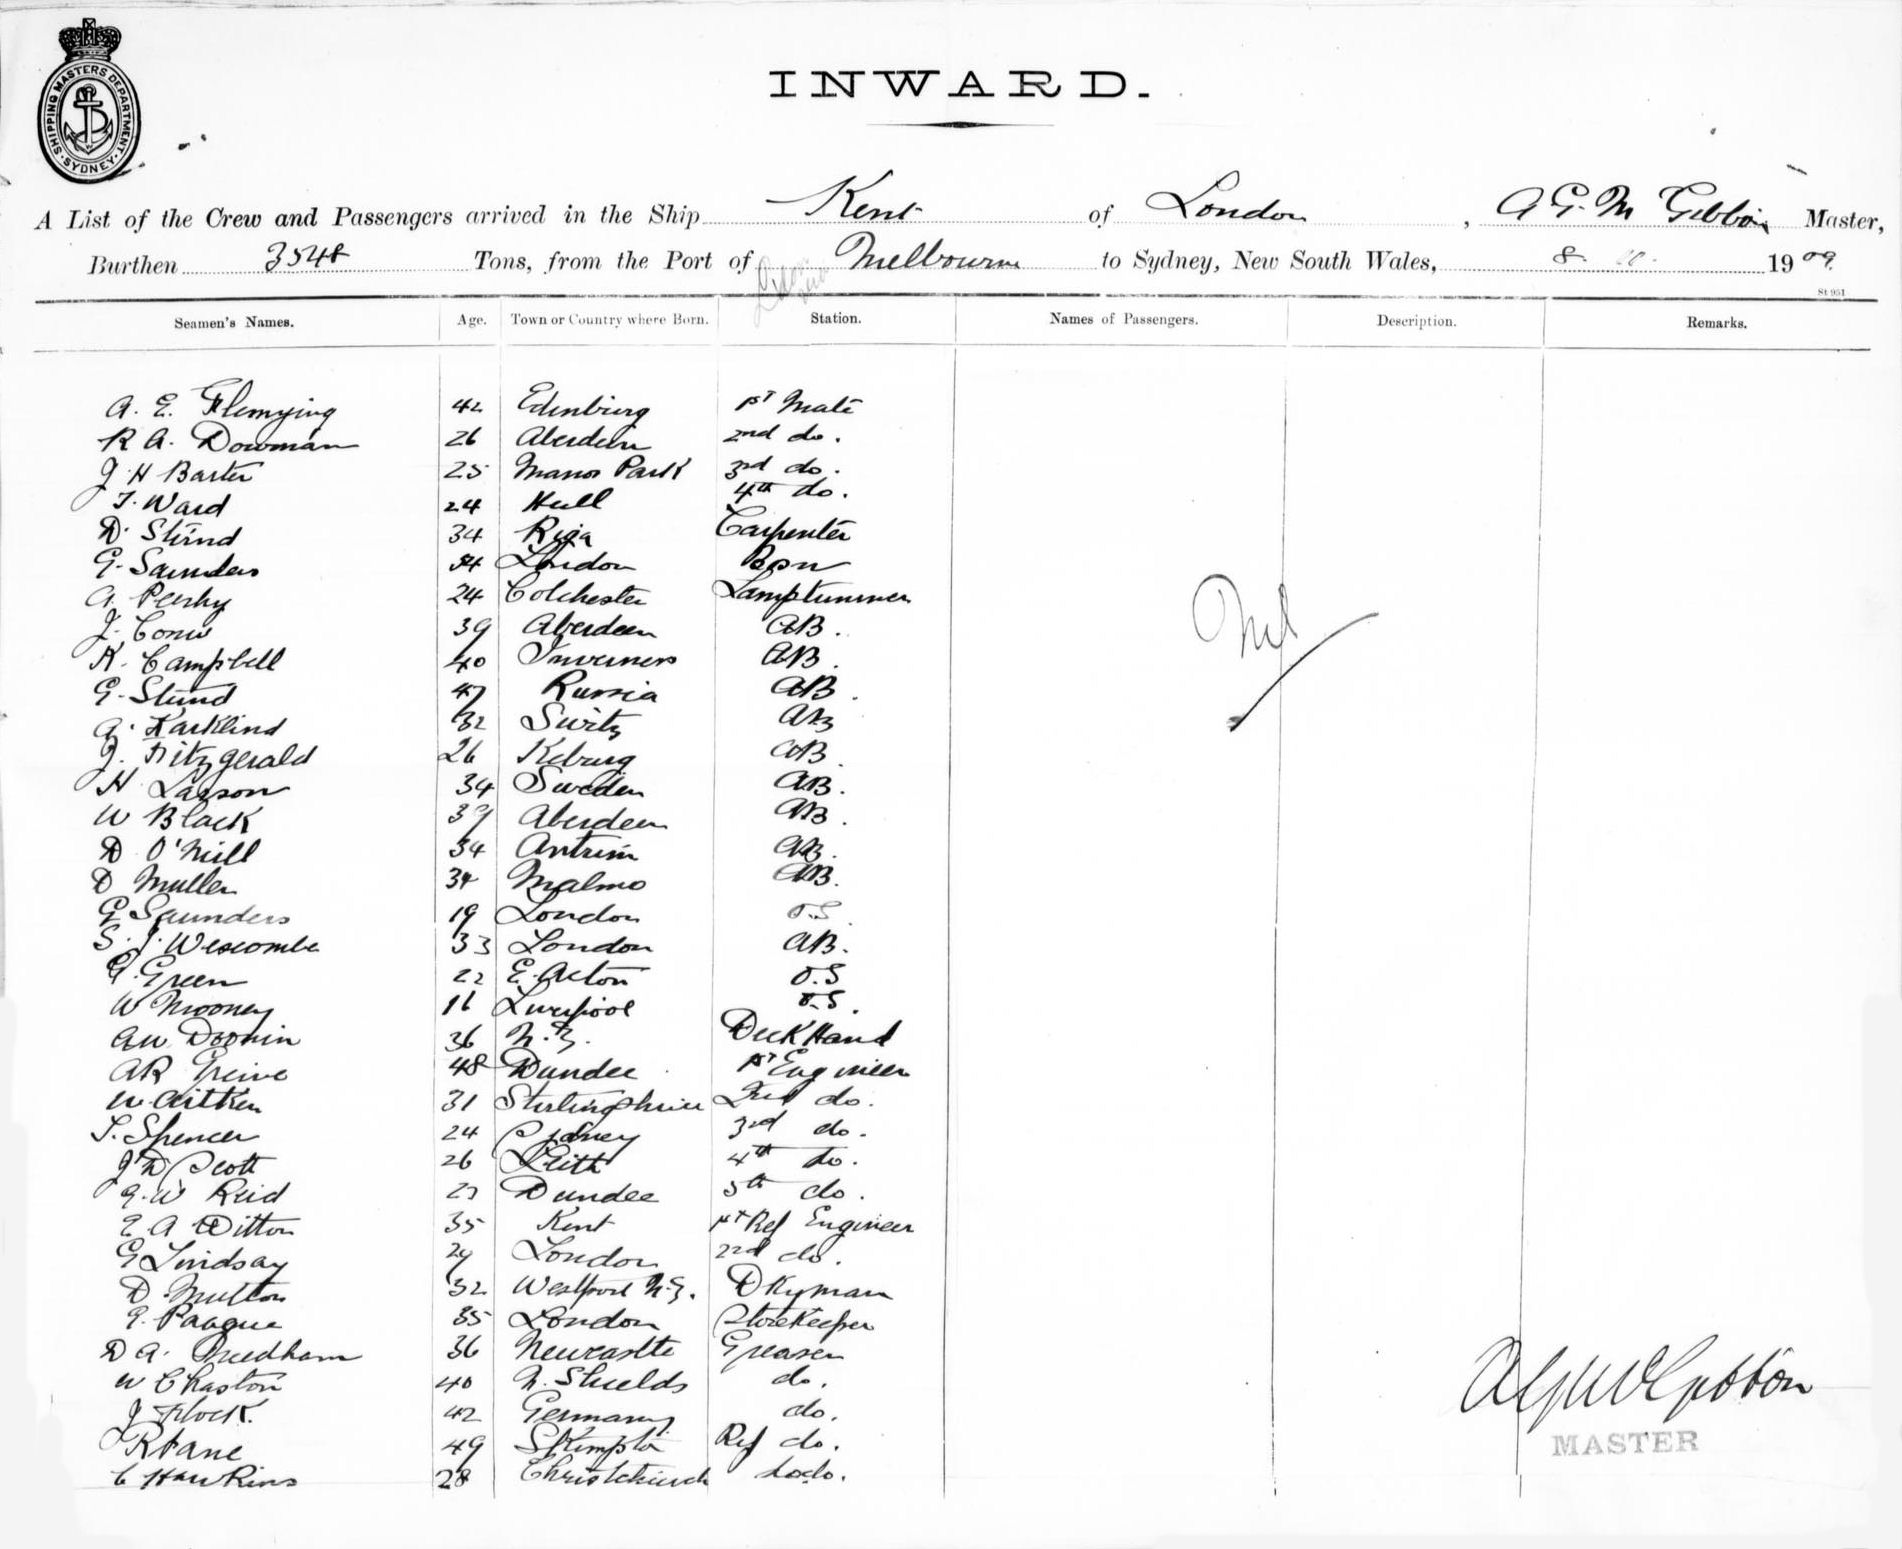 SHIPPING MASTERS DEPARTMENT
SYDNEY
INWARD.
A List of the Crew and Passengers arrived in the Ship Kent of London, A G. M Gibbon Master,
Burthen 3548 Tons, from the Port of Melbourne to Sydney, New South Wales, 8. 10. 1909
St 951
Seamen's Names. Age. Town or Country where Born. Station. Names of Passengers. Description. Remarks.
A. E. Flemying 42 Edinburg 1st Mate
R A. Dowman 26 Aberdein 2nd do.
J. H Barter 25 Manor Park 3rd do.
T. Ward 24 Hull 4th do.
D. Stund 34 Riga Carpenter
G. Saunders 54 London Bsn
A. 24 Colchester Lamptrimmer
J. 39 Aberdeen AB.
K. Campbell 40 Inverness AB.
G. Stund 47 Russia AB.
A. Karklind 32 Switz AB
J. Fitzgerald 26 AB.
H Larson 34 Sweden AB.
W Black 39 Aberdeen AB.
D O'Neill 34 Antrim AB.
D Muller 34 Malmo AB.
G Saunders 19 London O.S.
S. J. Wescombe 33 London AB.
G. Green 22 E. Acton O.S
W Mooney 16 Liverpool O.S.
AW Doonin 36 N.Z. Deck Hand
AR Greive 48 Dundee 1st Engineer
W. Aitken 31 Stirlingshire 2nd do.
T. Spencer 24 Sydney 3rd do.
J D Scott 26 Leith 4th do.
G. W Reid 27 Dundee 5th do.
E A Ditton 35 Kent 1st Ref Engineer
G Lindsay 29 London 22d do.
D Mutton 32 Westport N.Z. Dkyman
E. 35 London Storekeeper
D A. Needham 36 Newcastle Greaser
W Chaston 40 N. Shields do.
J Flock. 42 Germany do.
R Kane 49 Ref do.
C Hawkins 28 Christchurch do do.
Nil
A G M Gibbon
MASTER